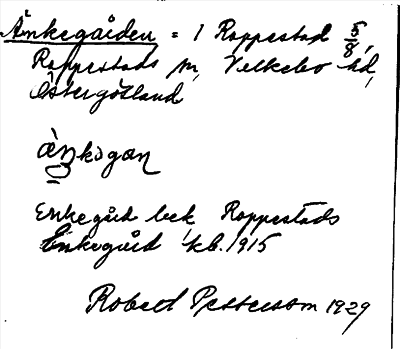 Änkegården = 1 Rappestad 5/8,
Rappestads sn, Valkebo hd,
Östergötland
ànkəgan
Enkegård bek. Rappestads
Enkegård kb. 1915
Robert Pettersson 1929